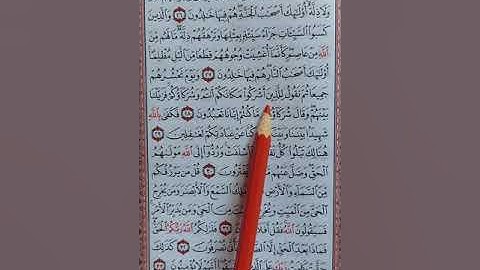 وَلَا ذِلَّةٌ أُو۟لَٰٓئِكَ أَصْحَٰبُ ٱلْجَنَّةِ هُمْ فِيهَا خَٰلِدُونَ ٢٦ وَٱلَّذِينَ
كَسَبُوا۟ ٱلسَّيِّـَٔاتِ جَزَآءُ سَيِّئَةٍۭ بِمِثْلِهَا وَتَرْهَقُهُمْ ذِلَّةٌ مَّا لَهُم مِّنَ
ٱللَّهِ مِنْ عَاصِمٍ كَأَنَّمَآ أُغْشِيَتْ وُجُوهُهُمْ قِطَعًا مِّنَ ٱلَّيْلِ مُظْلِمًا
أُو۟لَٰٓئِكَ أَصْحَٰبُ ٱلنَّارِ هُمْ فِيهَا خَٰلِدُونَ ٢٧ وَيَوْمَ نَحْشُرُهُمْ
جَمِيعًا ثُمَّ نَقُولُ لِلَّذِينَ أَشْرَكُوا۟ مَكَانَكُمْ أَنتُمْ وَشُرَكَآؤُكُمْ فَزَيَّلْنَا
بَيْنَهُمْ وَقَالَ شُرَكَآؤُهُم مَّا كُنتُمْ إِيَّانَا تَعْبُدُونَ ٢٨ فَكَفَىٰ بِٱللَّهِ
شَهِيدًۢا بَيْنَنَا وَبَيْنَكُمْ عَنْ عِبَادَتِكُمْ لَغَٰفِلِينَ ٢٩
هُنَالِكَ تَبْلُوا۟ كُلُّ نَفْسٍ أَسْلَفَتْ وَرُدُّوٓا۟ إِلَى ٱللَّهِ مَوْلَىٰهُمُ
ٱلْحَقِّ وَضَلَّ عَنْهُم يَفْتَرُونَ ٣٠ قُلْ مَن يَرْزُقُكُم
مِّنَ ٱلسَّمَآءِ وَٱلْأَرْضِ يَمْلِكُ ٱلسَّمْعَ وَٱلْأَبْصَٰرَ وَمَن يُخْرِجُ
ٱلْحَىَّ مِنَ ٱلْمَيِّتِ وَيُخْرِجُ ٱلْمَيِّتَ مِنَ ٱلْحَىِّ وَمَن يُدَبِّرُ ٱلْأَمْرَ
فَسَيَقُولُونَ ٱللَّهُ فَقُلْ أَفَلَا ٣١ فَذَٰلِكُمُ ٱللَّهُ رَبُّكُمُ ٱلْحَقُّ
فَمَاذَا بَعْدَ ٱلْحَقِّ إِلَّا ٱلضَّلَٰلُ تُصْرَفُونَ ٣٢ كَذَٰلِكَ
عَلَى ٱلَّذِينَ أَنَّهُمْ لَا يُؤْمِنُونَ ٣٣